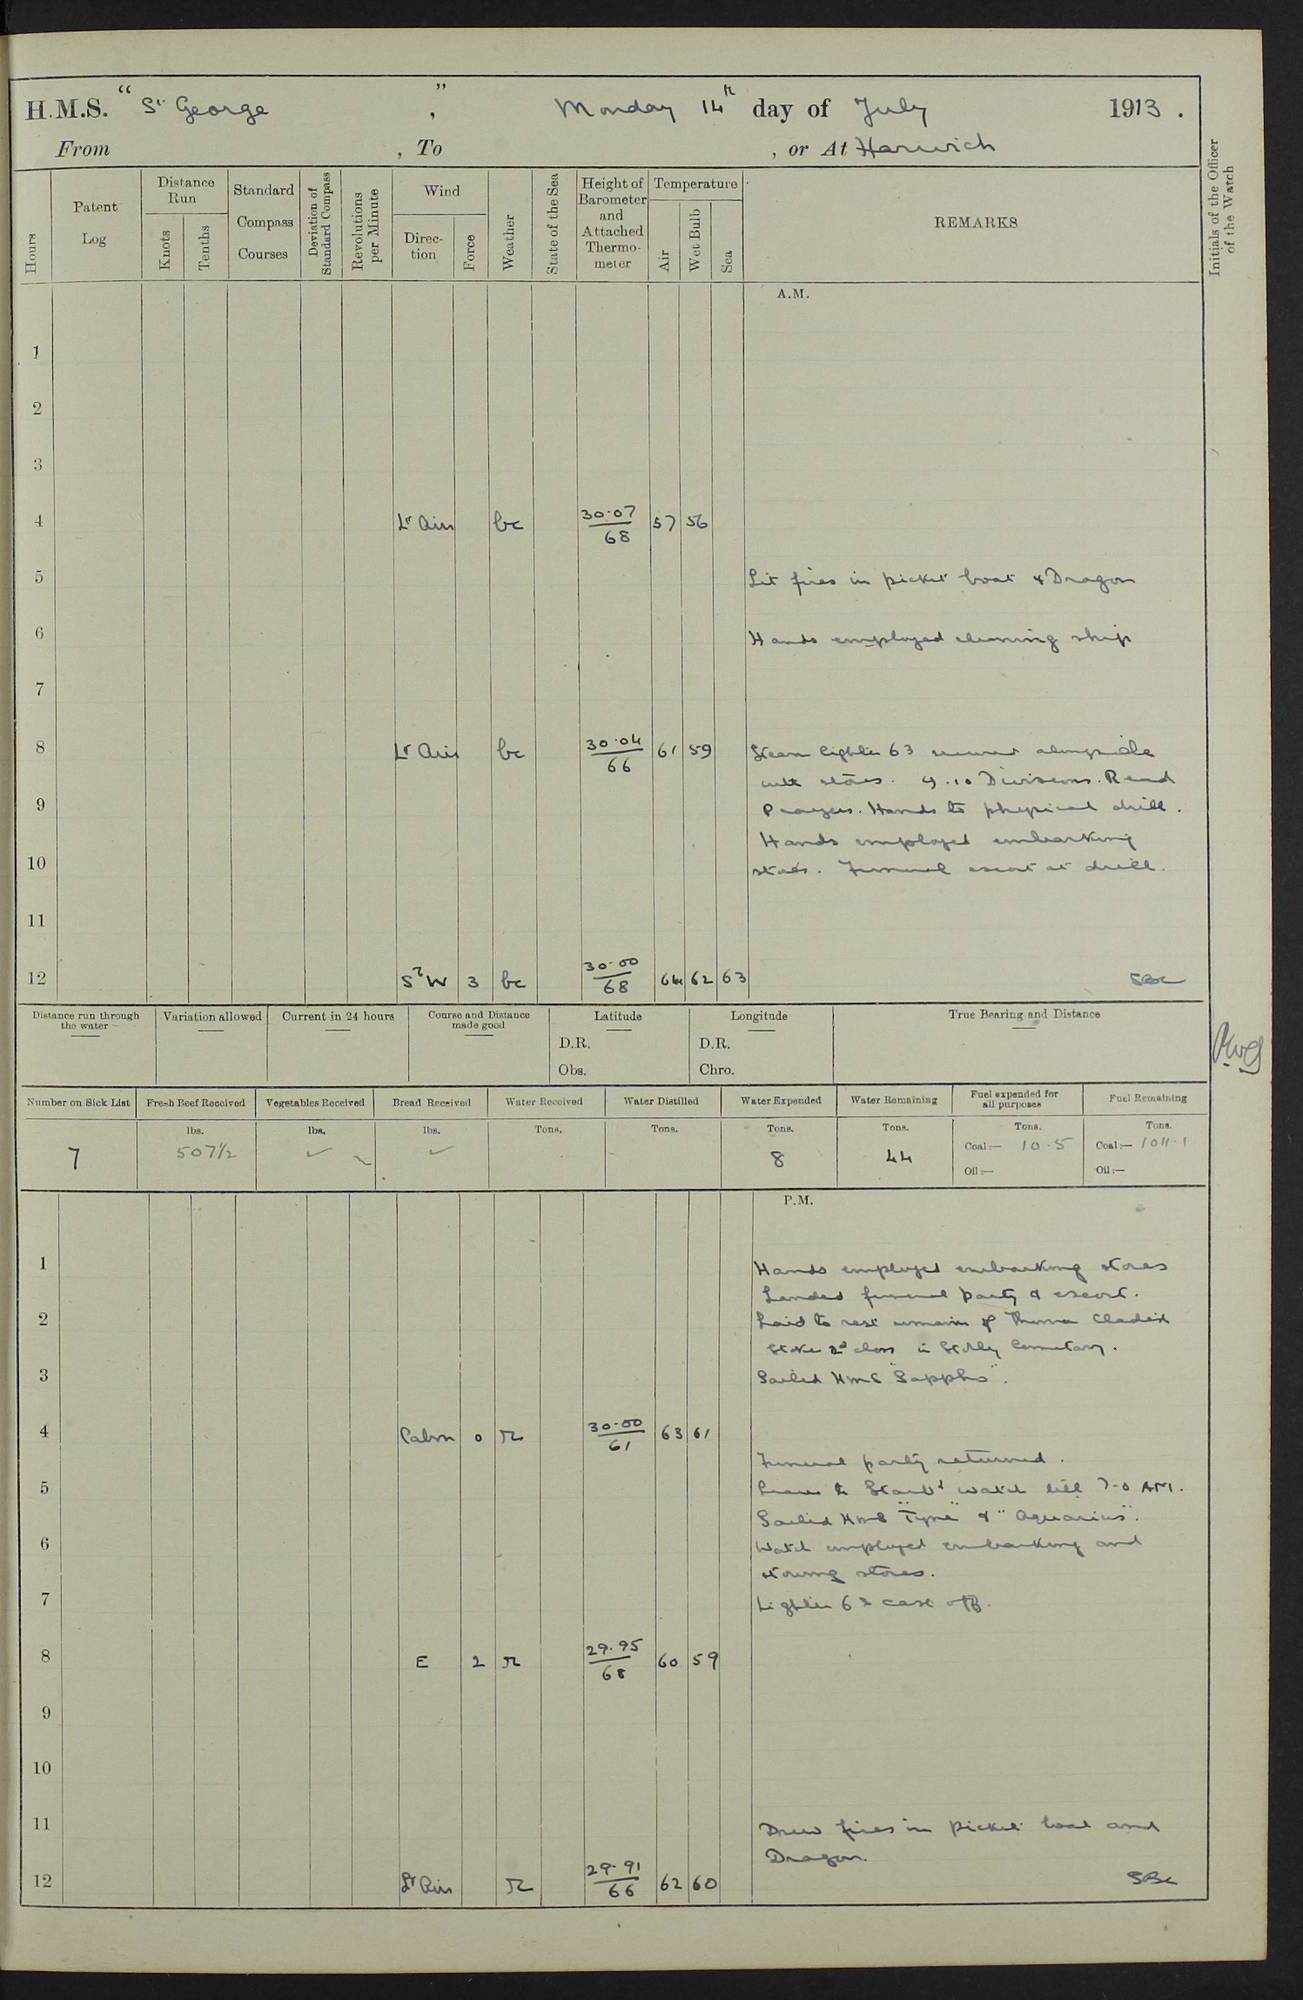 H.M.S. " St George , " Monday 14th day of July 1913 .
From , To , or At Harwich
Hours
Patent Log
Distance Run
Knots
Tenths
Standard Compass Courses
Deviation of Standard Compass
Revolutions per Minute
Wind
Direc-tion
Force
Weather
State of the Sea
Height of Barometer and Attached Thermo-meter
Temperature
Air
Wet Bulb
Sea
REMARKS
Initials of the Officer of the Watch
A.M.
1
2
3
4 Lt Airs bc 30.07/68 57 56
5 Lit fires in picket boat & Dragon
6 Hands employed cleaning ship
7
8 Lt Airs bc 30.04/66 61 59 Steam lighter 63 alongside
with stores. 9.10 Divisions. Read
9 Prayers. Hands to physical drill.
Hands employed embarking
10 stores. Funeral escort at drill.
11
12 SbW 3 bc 30.00/68 64 62 63
Distance run through the water
Variation allowed
Current in 24 hours
Course and Distance made good
Latitude
D.R.
Obs.
Longitude
D.R.
Chro.
True Bearing and Distance
Number on Sick List 7
Fresh Beef Received lbs. 507½
Vegetables Received lbs. ✓
Bread Received lbs. ✓
Water Received Tons.
Water Distilled Tons.
Water Expended Tons. 8
Water Remaining Tons. 44
Fuel expended for all purposes Tons. Coal:— 10.5 Oil:—
Fuel Remaining Tons. Coal:— 1011.1 Oil:—
P.M.
1 Hands employed embarking stores
Landed funeral party & escort.
2 Laid to rest remains of
Stoker 2d class in Cemetary.
3 Sailed HMS "Sappho".
4 Calm 0 r 30.00/61 63 61
Funeral party returned.
5 Leave to Starbd watch till 7.0 AM.
Sailed HMS "Tyne" & "Aquarius".
6 Watch employed embarking and
stowing stores.
7 Lighter 63 cast off.
8 E 2 r 29.95/68 60 59
9
10
11 Drew fires in picket boat and
Dragon.
12 Lt Airs r 29.91/66 62 60